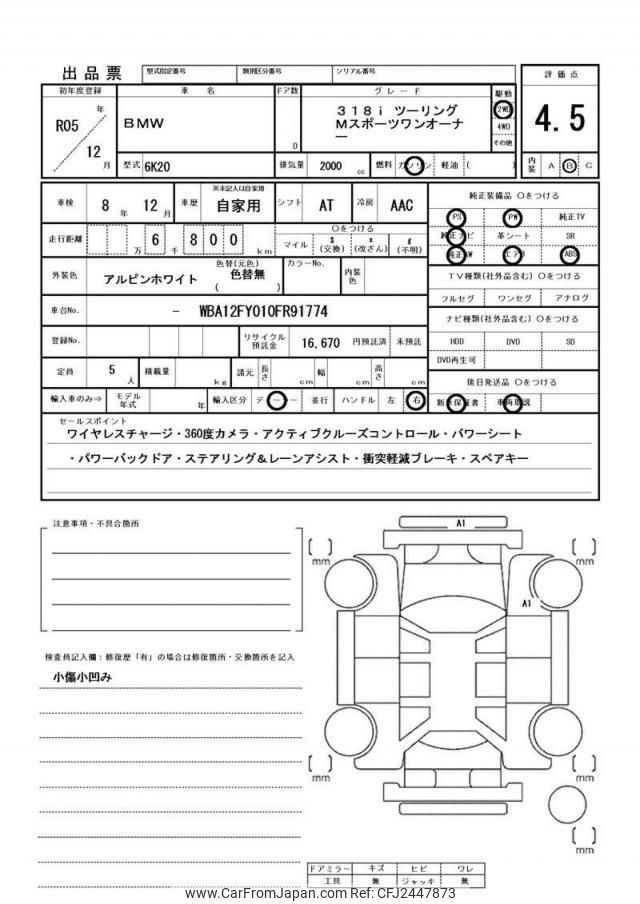 出品票 型式指定番号 類別区分番号 シリアル番号
評価点
初年度登録 車名 ドア数 グレード 駆動
R05 年 BMW D 318i ツーリング
Mスポーツワンオーナ
ー
2WD
4WD
その他
4.5
12 月 型式 6K20 排気量 2000 cc 燃料 ガソリン 軽油 ( ) 内装 A B C
車検 8 年 12 月 車歴 ※未記入は自家用 自家用 シフト AT 冷房 AAC
純正装備品 Oをつける
PS PW 純正TV
純正ナビ 革シート SR
純正AW エアB ABS
走行距離 万 6 千 800 km Oをつける
マイル $ (交換) x (改ざん) # (不明)
TV種類(社外品含む) Oをつける
フルセグ ワンセグ アナログ
外装色 アルピンホワイト 色替(元色) 色替無 ( ) カラーNo. 内装色
車台No. - WBA12FY010FR91774
ナビ種類(社外品含む) Oをつける
HDD DVD SD
DVD再生可
登録No. リサイクル預託金 16,670 円預託済 未預託
定員 5 人 積載量 kg 諸元 長さ cm 幅 cm 高さ cm
後日発送品 Oをつける
新車保証書 車両取説
輸入車のみ⇒ モデル年式 年 輸入区分 ディーラー 並行 ハンドル 左 右
セールスポイント
ワイヤレスチャージ・360度カメラ・アクティブクルーズコントロール・パワーシート
・パワーバックドア・ステアリング&レーンアシスト・衝突軽減ブレーキ・スペアキー
注意事項・不具合箇所
A1
mm
mm
A1
検査員記入欄:修復歴「有」の場合は修復箇所・交換箇所を記入
小傷小凹み
mm
mm
mm
ドアミラー キズ ヒビ ワレ
工具 無 ジャッキ 無
www.CarFromJapan.com Ref: CFJ2447873